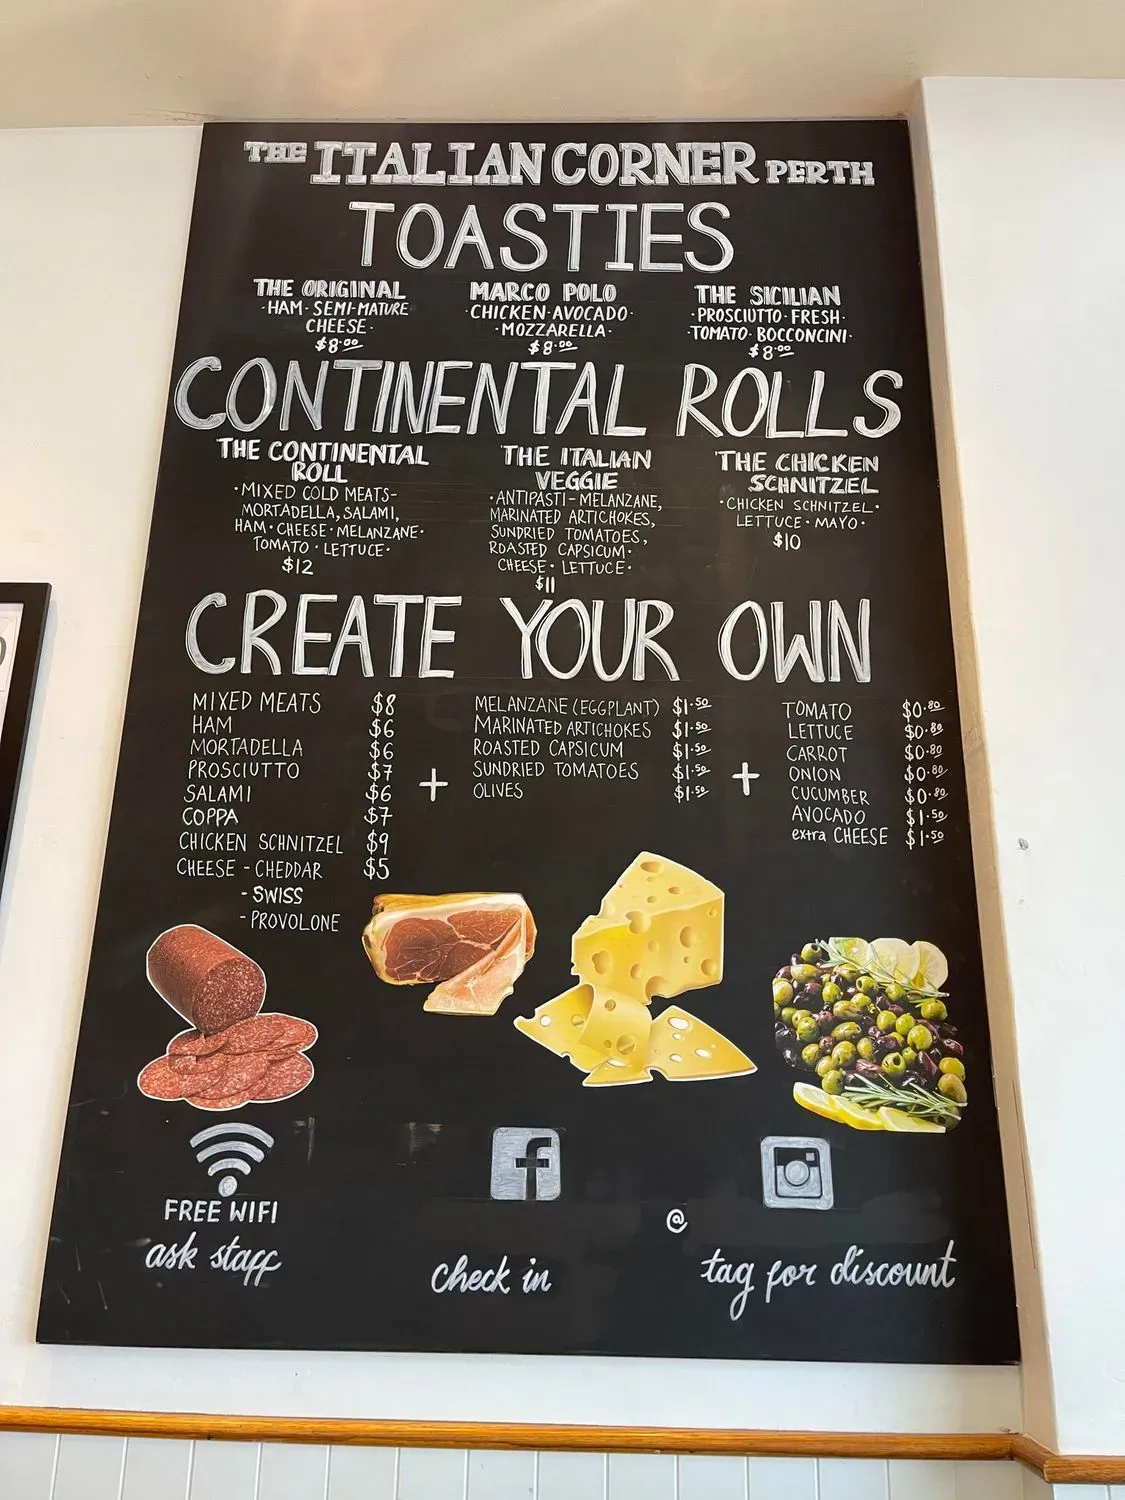 THE ITALIAN CORNER PERTH
TOASTIES
THE ORIGINAL
·HAM·SEMI-MATURE
CHEESE·
$8.00
MARCO POLO
·CHICKEN·AVOCADO·
·MOZZARELLA·
$8.00
THE SICILIAN
·PROSCIUTTO·FRESH·
·TOMATO·BOCCONCINI·
$8.00
CONTINENTAL ROLLS
THE CONTINENTAL
ROLL
·MIXED COLD MEATS-
MORTADELLA, SALAMI,
HAM·CHEESE·MELANZANE·
TOMATO·LETTUCE·
$12
THE ITALIAN
VEGGIE
·ANTIPASTI-MELANZANE,
MARINATED ARTICHOKES,
SUNDRIED TOMATOES,
ROASTED CAPSICUM·
CHEESE·LETTUCE·
$11
THE CHICKEN
SCHNITZEL
·CHICKEN SCHNITZEL·
LETTUCE·MAYO·
$10
CREATE YOUR OWN
MIXED MEATS $8
HAM $6
MORTADELLA $6
PROSCIUTTO $7
SALAMI $6
COPPA $7
CHICKEN SCHNITZEL $9
CHEESE - CHEDDAR $5
- SWISS
- PROVOLONE
+
MELANZANE (EGGPLANT) $1.50
MARINATED ARTICHOKES $1.50
ROASTED CAPSICUM $1.50
SUNDRIED TOMATOES $1.50
OLIVES $1.50
+
TOMATO $0.80
LETTUCE $0.80
CARROT $0.80
ONION $0.80
CUCUMBER $0.80
AVOCADO $1.50
extra CHEESE $1.50
FREE WIFI
ask staff
f
check in
@
tag for discount